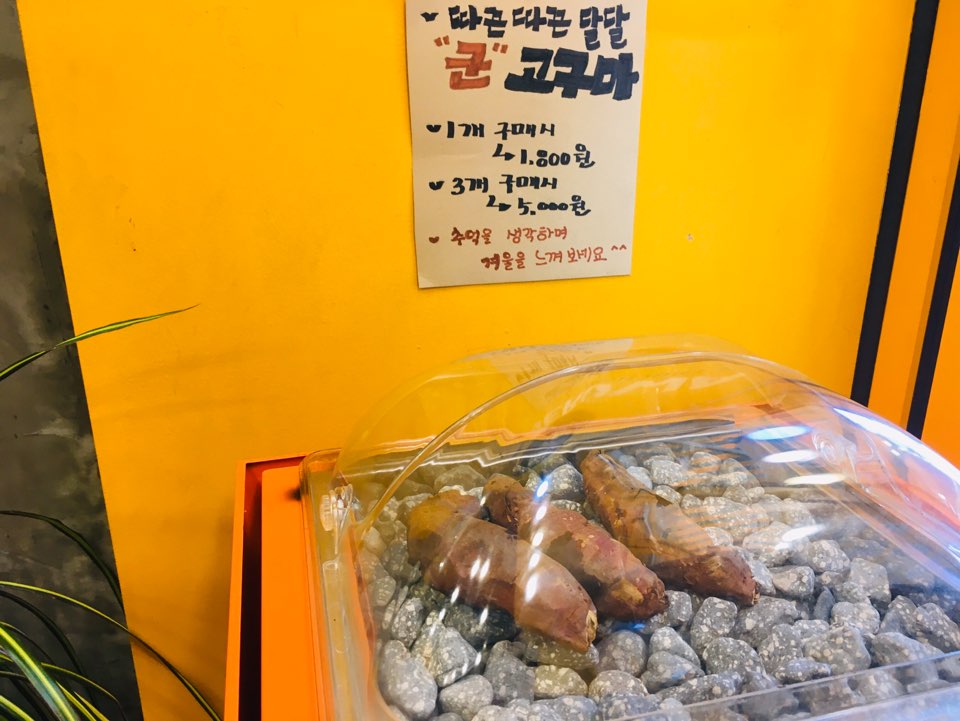 따끈따끈 달달
"군" 고구마
1개 구매시
↳ 1,800원
3개 구매시
↳ 5,000원
추억을 생각하며
겨울을 느껴보네요^^